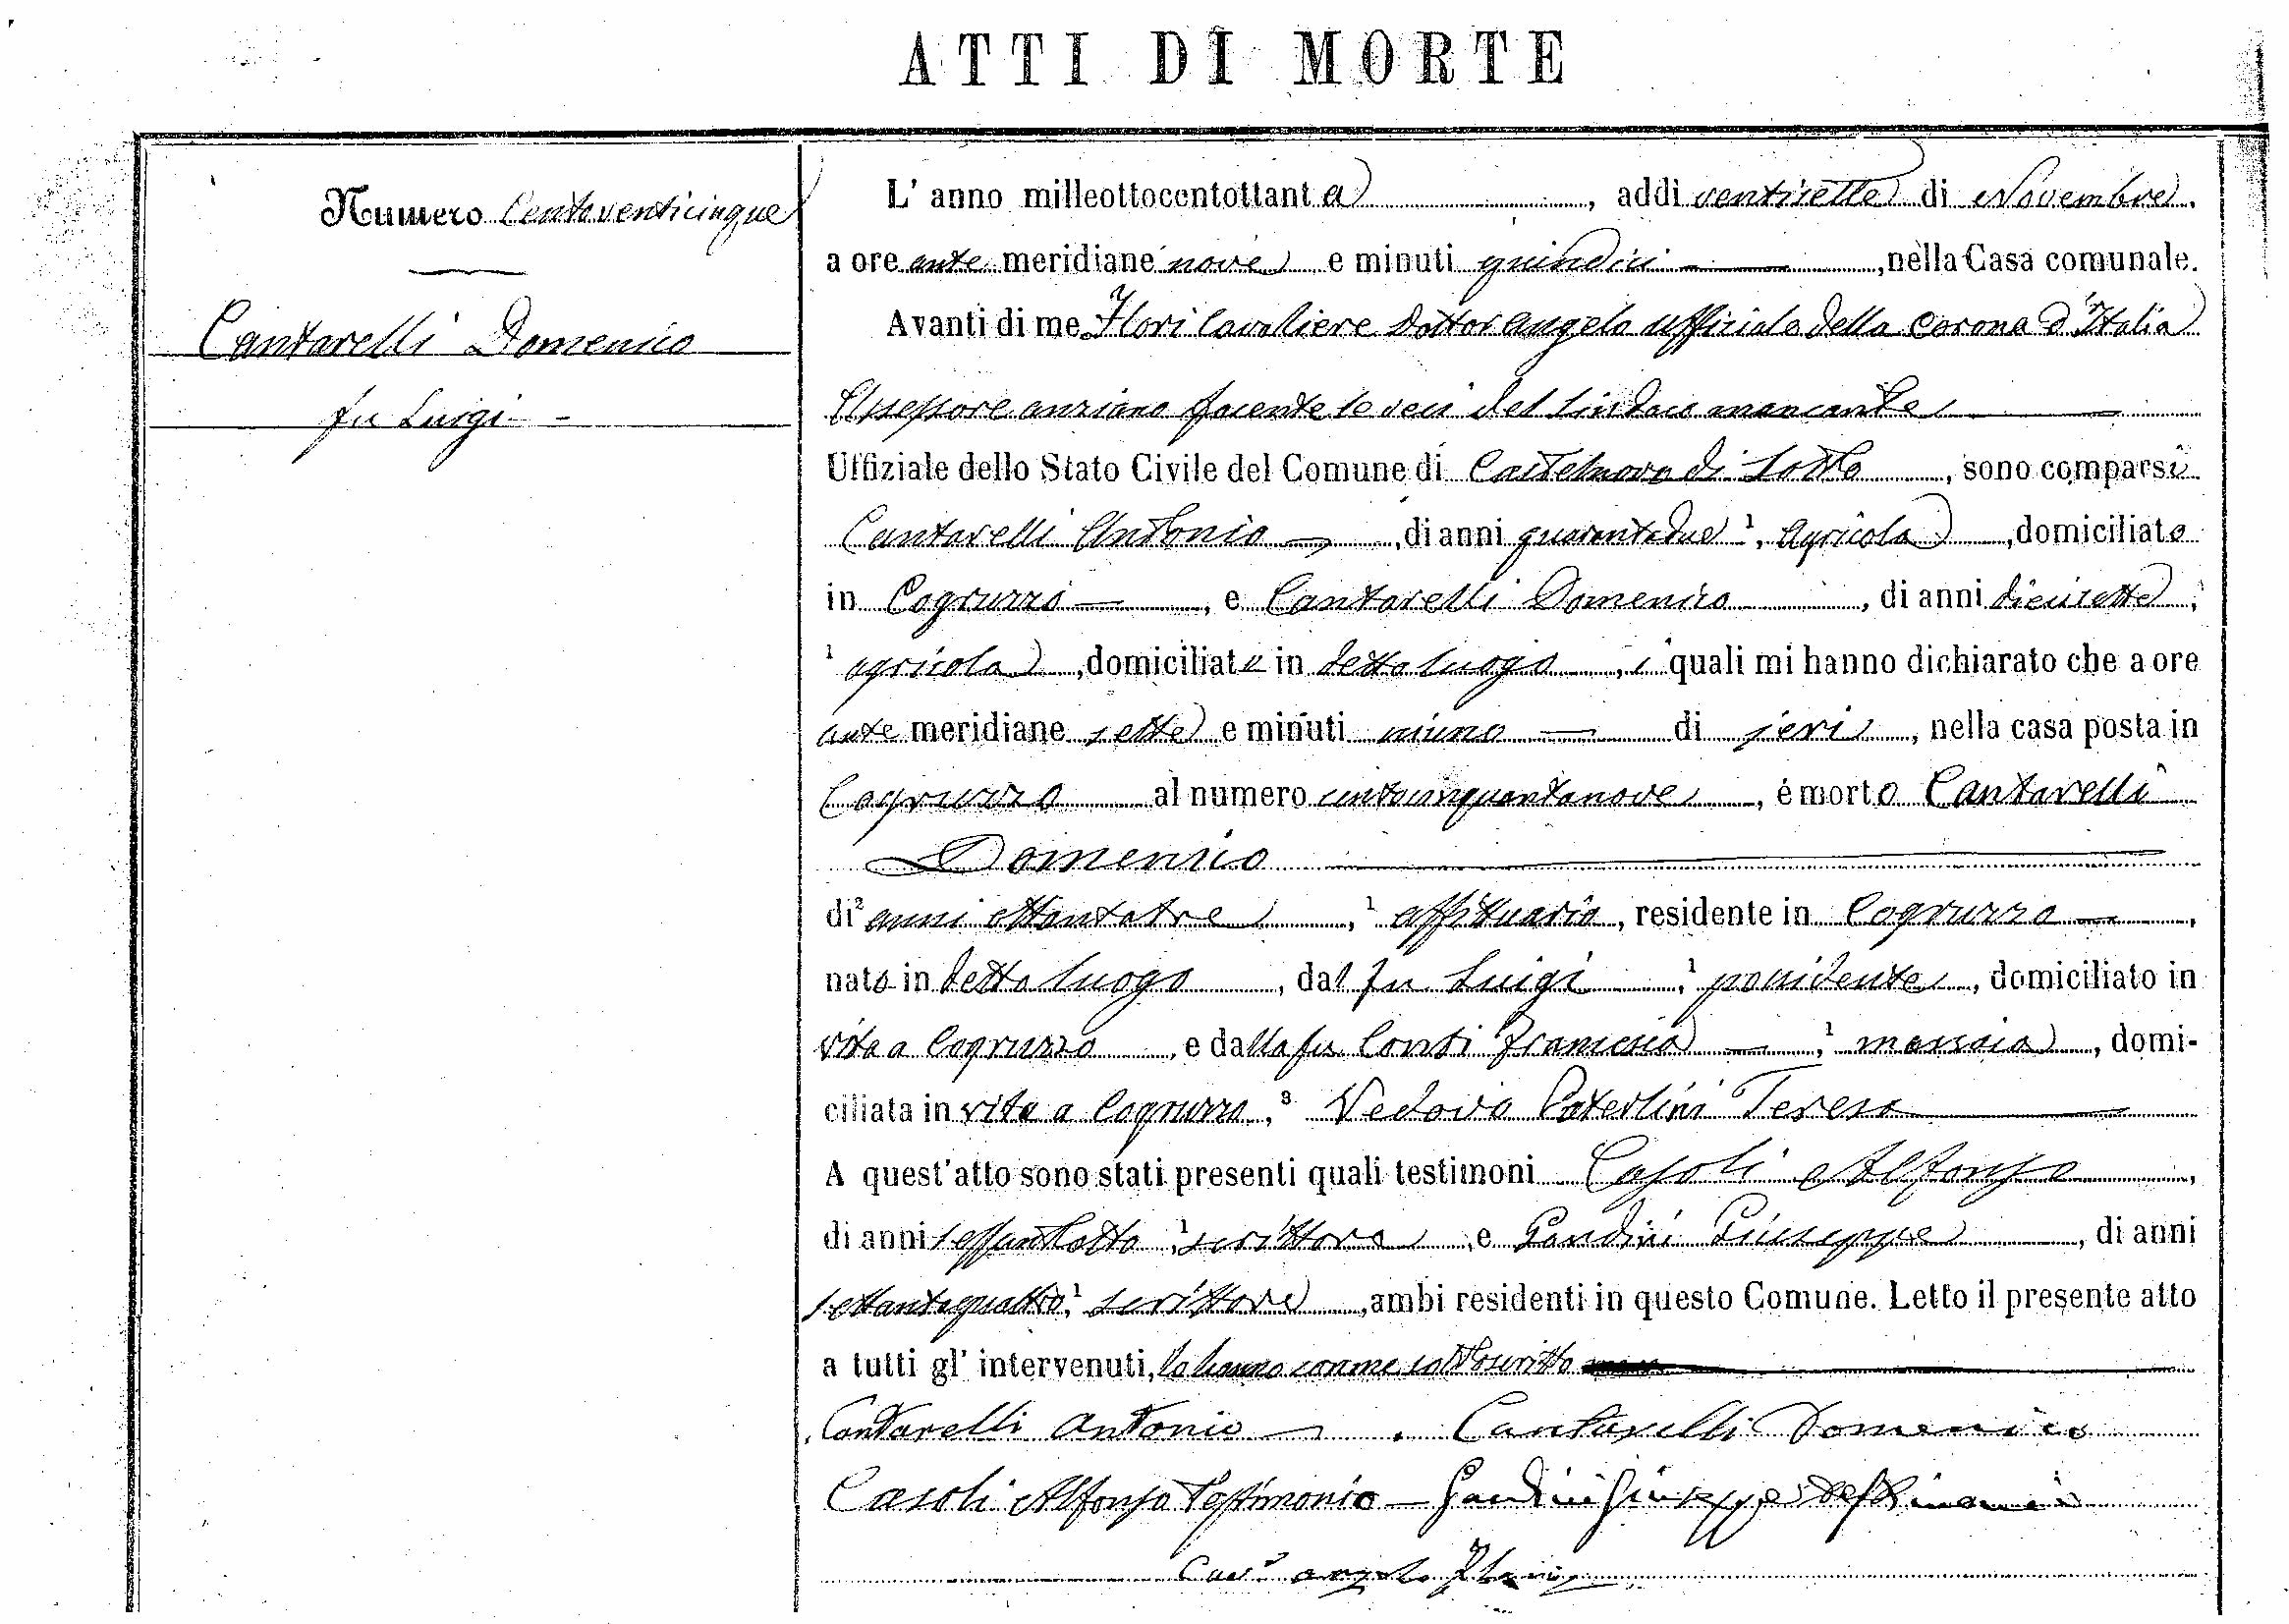 ATTI DI MORTE
Numero Centoventicinque
Cantarelli Domenico
fu Luigi -
L' anno milleottocentottanta, addi ventisette di Novembre,
a ore ante meridiane nove e minuti quindici, nella Casa comunale.
Avanti di me Flori Cavaliere Dottor Angelo uffiziale della Corona d'Italia
Assessore anziano facente le veci del sindaco mancante
Uffiziale dello Stato Civile del Comune di Castelnovo di Sotto, sono comparsi
Cantarelli Antonio, di anni quarantadue 1, agricola, domiciliato
in Cogruzzo, e Cantarelli Domenico, di anni diecisette,
1 agricola, domiciliati in detto luogo, i quali mi hanno dichiarato che a ore
ante meridiane sette e minuti niuno di jeri, nella casa posta in
Cogruzzo al numero centocinquantanove, è morto Cantarelli
Domenico
di 2 anni ottantatre, 1 affittuario, residente in Cogruzzo,
nato in detto luogo, dal fu Luigi, 1 possidente, domiciliato in
vita a Cogruzzo, e dalla fu Conti Francesca, 1 massaia, domi-
ciliata in vita a Cogruzzo, 3 Vedovo Caterlini Teresa
A quest'atto sono stati presenti quali testimoni Casoli Alfonso,
di anni sessantotto, 1 scrittore, e Gandini Giuseppe, di anni
settantaquattro, 1 scrittore, ambi residenti in questo Comune. Letto il presente atto
a tutti gl' intervenuti, lo hanno con me sottoscritto
Cantarelli Antonio. Cantarelli Domenico
Casoli Alfonso Testimonio - Gandini Giuseppe testimonio
Cav.r Angelo Flori